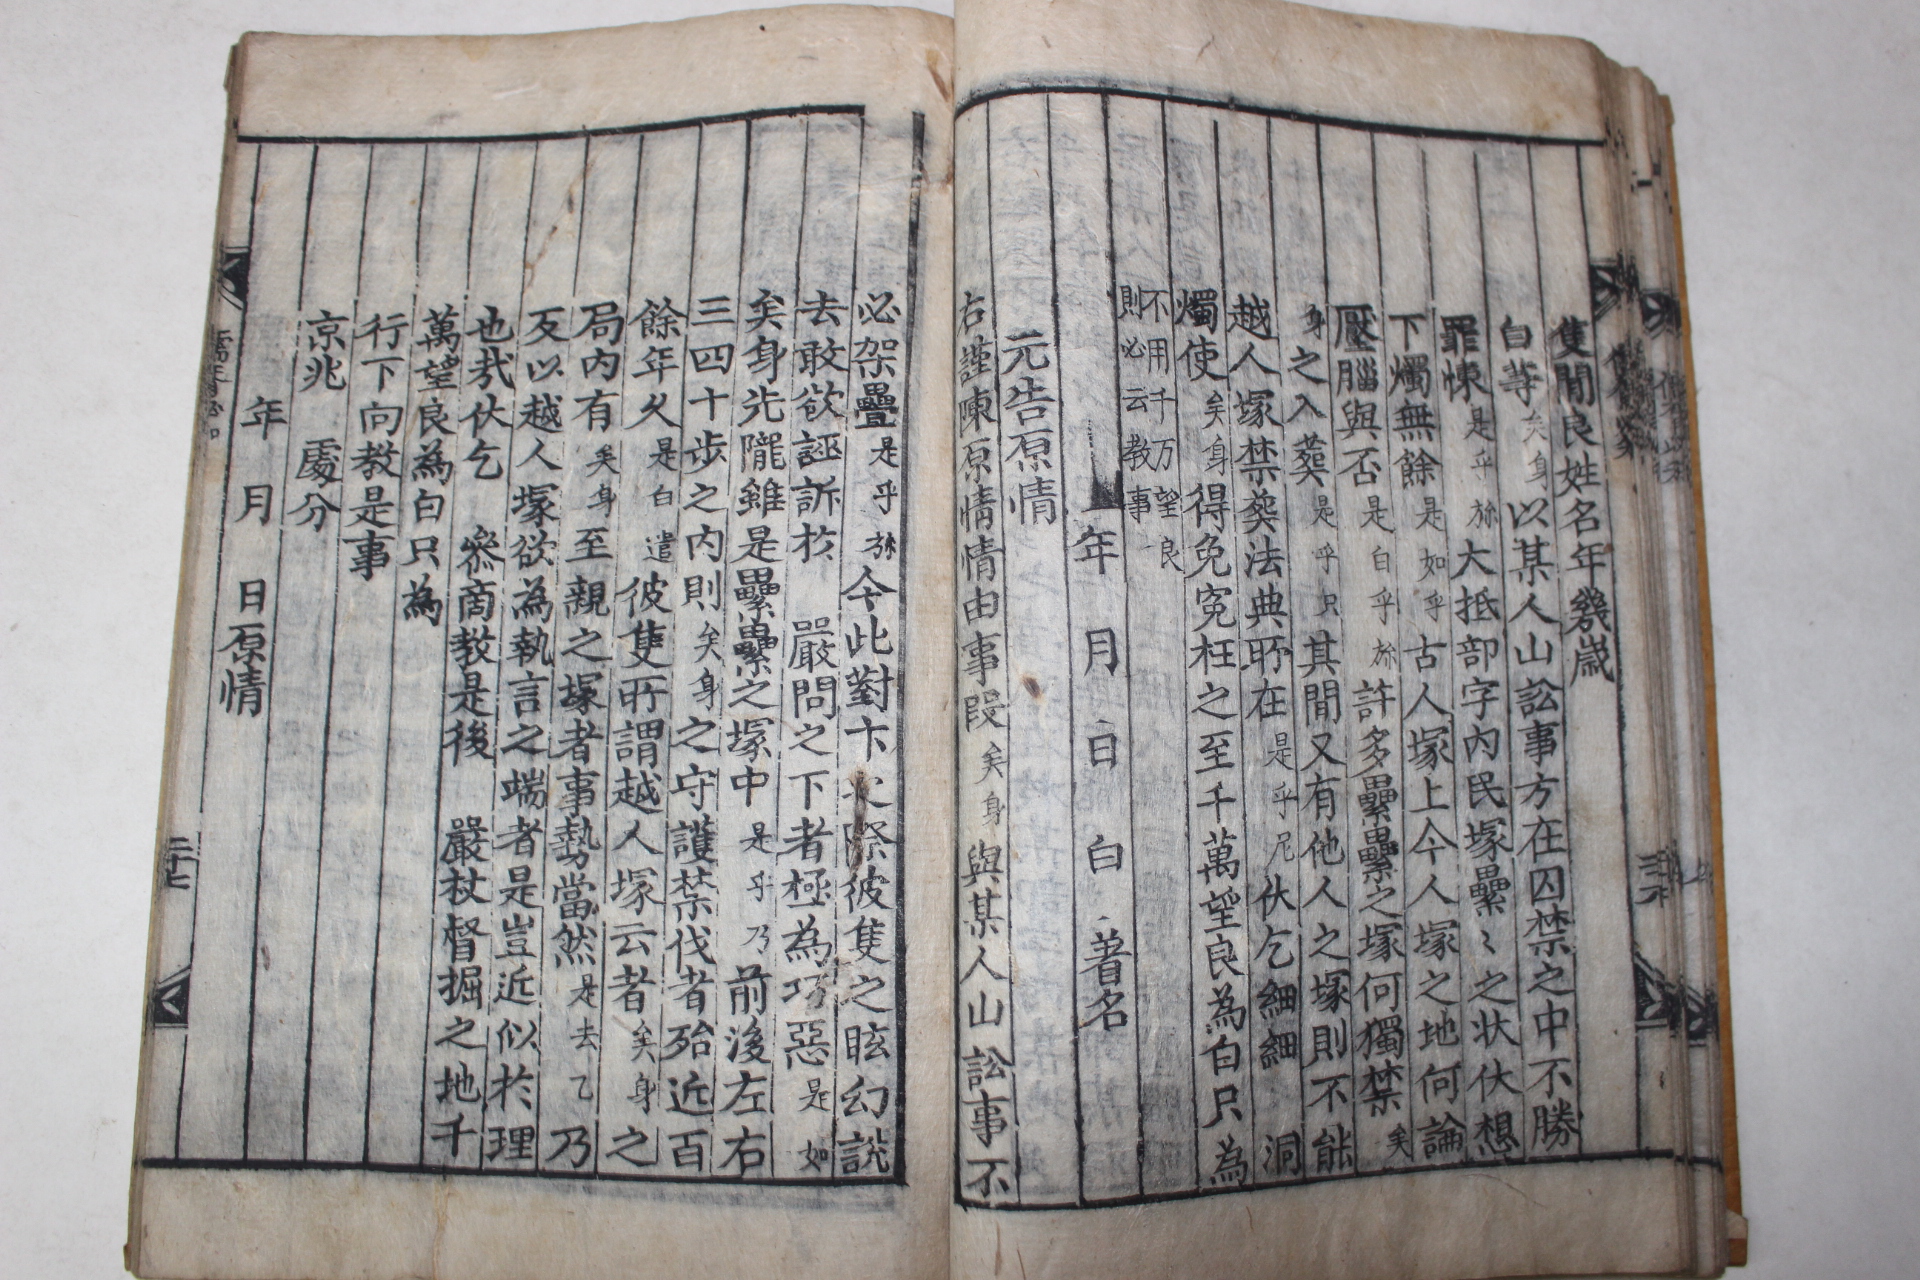 隻閒良姓名年幾歲
白等矣身以某人山訟事方在囚禁之中不勝
罪悚是乎旀大抵部字內民塚纍〻之狀伏想
下燭無餘是如乎古人塚上今人塚之地何論
壓腦與否是白乎旀許多纍纍之塚何獨禁矣
身之入葬是乎只其間又有他人之塚則不能
越人塚禁葬法典所在是乎尼伏乞細細 洞
燭使矣身得免冤枉之至千萬望良為白只為
不用千万望良
則必云教事
年 月 日 白 着名
元告原情
右謹陳原情情由事段矣身與某人山訟事不
必架疊是乎旀今此對卞之際彼隻之眩幻說
去敢欲誣訴於 嚴問之下者極為巧惡是如
矣身先隴雖是纍纍之塚中是乎乃前後左右
三四十步之內則矣身之守護禁伐者殆近百
餘年久是白遣彼隻所謂越人塚云者矣身之
局內有矣身至親之塚者事勢當然是去乙乃
反以越人塚欲為執言之端者是豈近似於理
也哉伏乞 參商教是後 嚴杖督掘之地千
萬望良為白只為
行下向教是事
京兆 處分
年 月 日原情
儒胥必知
二十七